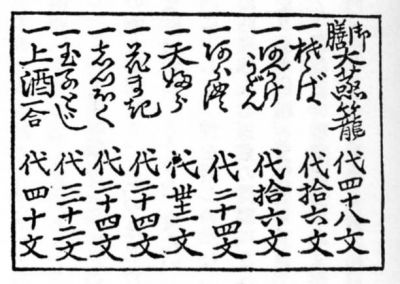 御膳大蒸籠 代四十八文
一そば 代拾六文
一あんかけうどん 代拾六文
一あられ 代二十四文
一天ぷら 代卅二文
一花まき 代二十四文
一しつぽく 代二十四文
一玉子とじ 代三十二文
一上酒一合 代四十文